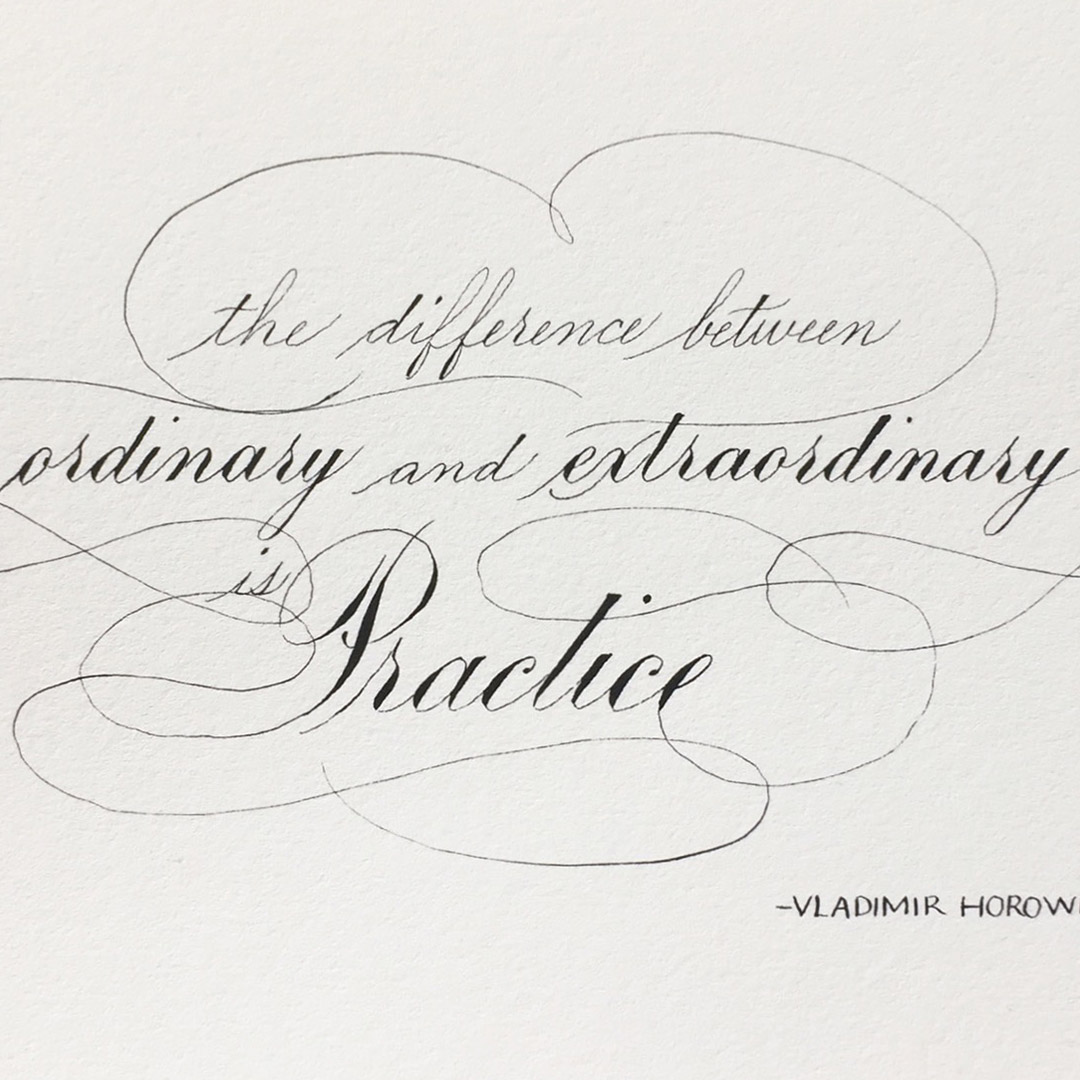 the difference between
ordinary and extraordinary
is Practice
-VLADIMIR